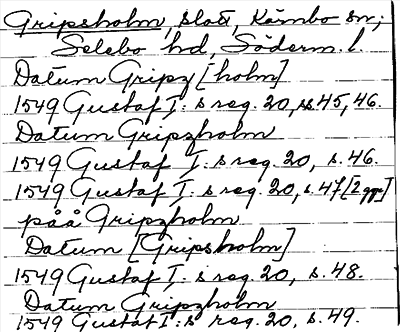 Gripsholm, slott, Kärnbo sn;
Selebo hd, Söderm. l.
Datum Gripz [holm]
1549 Gustaf I:s reg. 20, ss 45, 46.
Datum Gripzholm
1549 Gustaf I:s reg. 20, s. 46.
1549 Gustaf I:s reg. 20, s. 47 [2 ggr]
påå Gripzholm
Datum [Gripsholm]
1549 Gustaf I:s reg. 20, s. 48.
Datum Gripzholm
1549 Gustaf I:s reg. 20, s. 49.